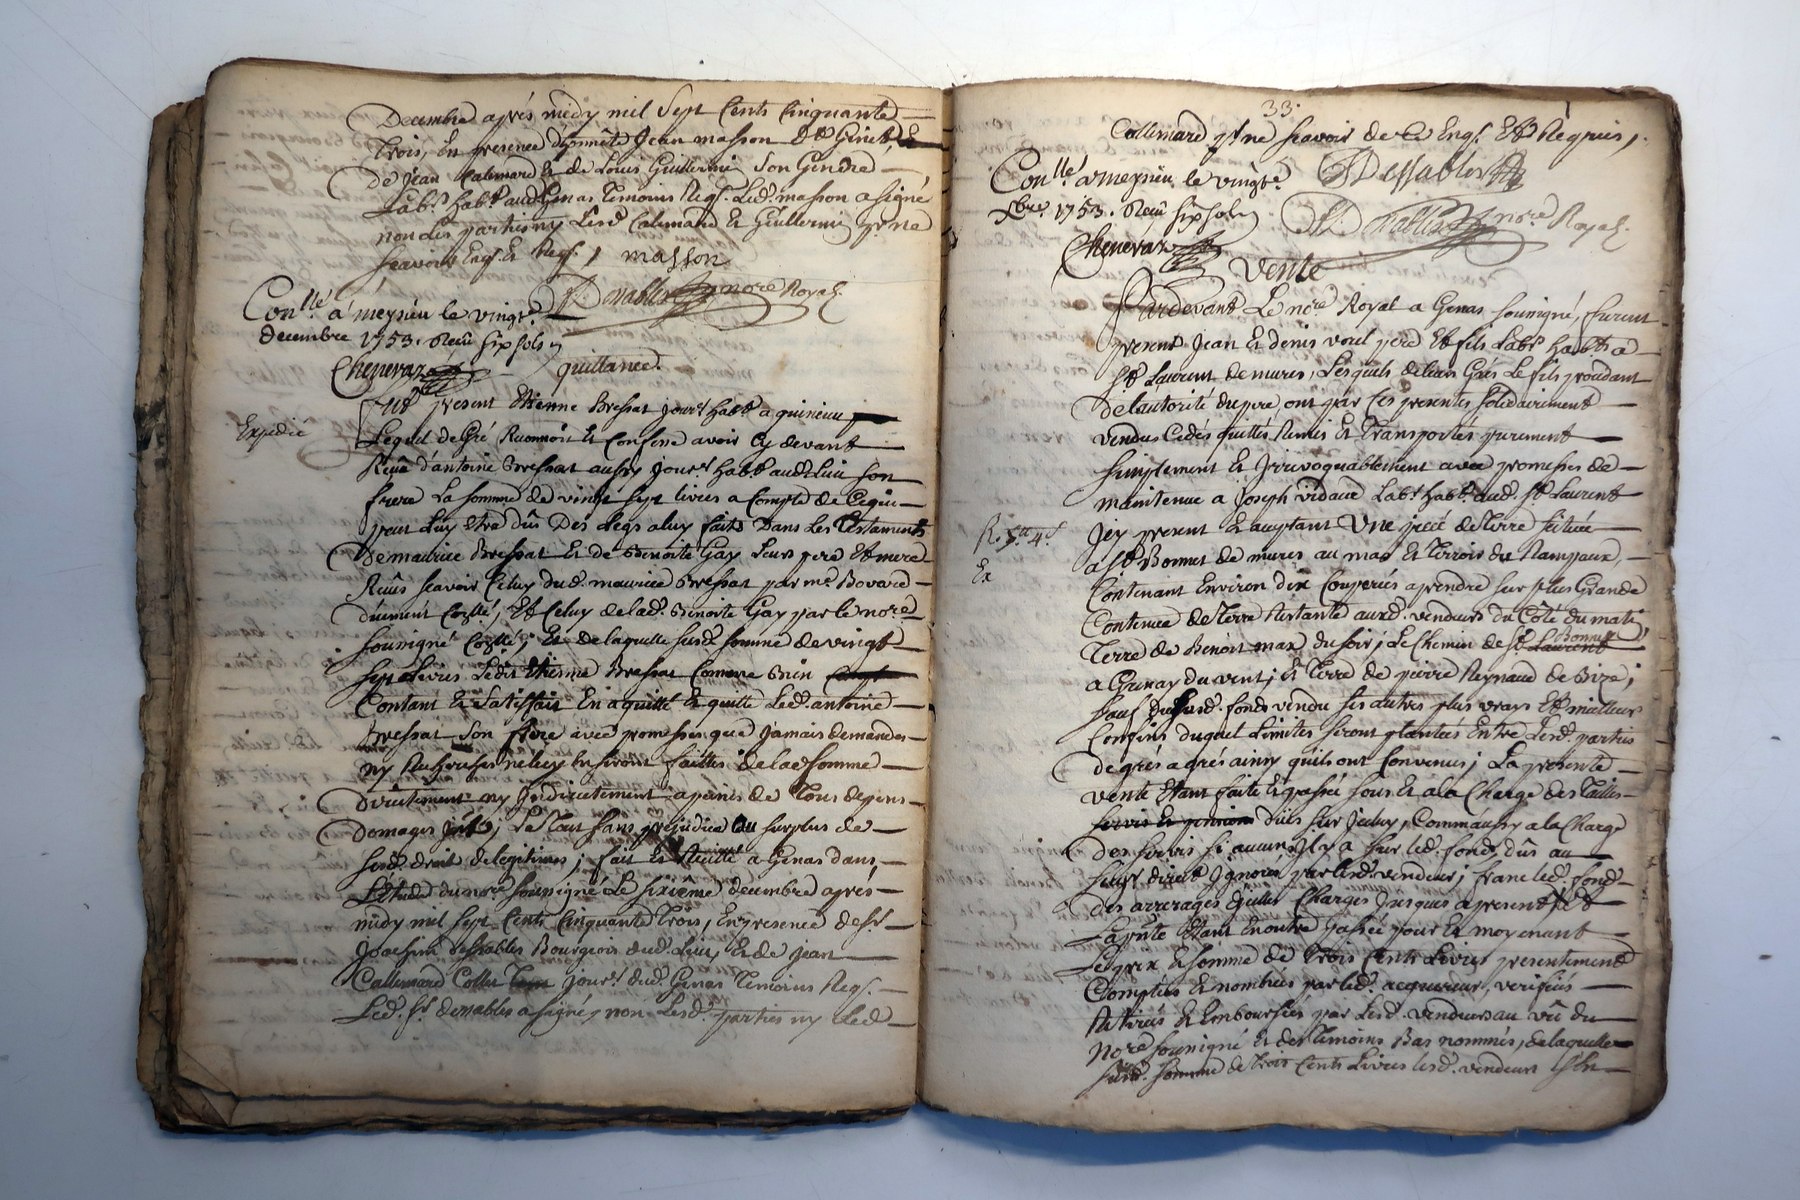 Decembre aprés midy mil Sept Cents Cinquante
trois, En presence d'honnête Jean masson dt Ginet, &
de Jean Calemard & de Louis Guillermin Son Gendre
Labrs habts aud Genas temoins Reqs. Led. masson a signé
non les parties ny Lesd Calemard & Guillermin pr ne
scavoir Enqs. & Reqs. masson
nore Royal.
Conllé a meysieu le vingt
decembre 1753. Receu six sols
Chenevaz
quittance.
Expedié
fut present Etienne Bressat jourr habt a quirieux
Lequel de Gré Reconnoit & Confesse avoir Cy devant
Receu d'antoine Bressat aussy jourr habt aud Lieu son
frere La somme de vingt sept livres a Compte de Ce qui
peut Luy Etre dûs Des Legs a luy faits Dans Les Testaments
De maurice Bressat & de Benoite Gay Leurs pere Et mere
Reçus scavoir Celuy dud. maurice Bressat par me Bovard
duement Collé, Et Celuy de lad. Benoite Gay par le nore
sousigné Collé, Et de laquelle susd somme de vingt
sept Livres Ledit Etienne Bressat Comme Bien
Contant & Satisfait En a quitté & quitte Led. antoine
Bressat Son frere avec promesse que Jamais demande
ny Recherches ne luy En seront faittes de lad somme
Directement ny Indirectement a peine de Tous depens
Domages ; Le Tout sans prejudice du surplus de
sesd. droits de legitimes ; fait & Recitté a Genas dans
L'Etude du nore sousigné Le sixième decembre aprés
midy mil sept Cents Cinquante Trois, En presence de sr
Joachim dessables Bourgeois dud. Lieu, & de Jean
Callemard Collet jourr dud. Genas Temoins Reqs.
Led. sr dessables a signé, non Lesd. parties ny Led
33.
Callemard pr ne scavoir de Ce Enqs. Et Requis,
Dessables
Conllé a meysieu le vingt
Xbre. 1753. Receu six sols
nore Royal.
Chenevaz
Vente
Pardevant Le nore Royal a Genas sousigné, furent
presents Jean & denis pere Et fils Labrs habts a
St Laurent de mures, Lesquels de leur Grés Le fils procedant
de l'autorité du pere, ont par Ces presentes solidairement
vendus Cedés quittés Remis & Transportés purement
simplement & Irrevoquablement avec promesses de
maintenue a Joseph vidaud Labr habt aud. St Laurent
R. 4
Icy present & acceptant Une piece de Terre scituée
Ex
a St Bonnet de mures au mas & Terroir du Rampaux,
Contenant Environ dix Couperées a prendre sur plus Grande
Contenue de Terre Restante auxd. vendeurs du Côté du matin,
Terre de Benoit max du soir ; Le Chemin de St Laurent Bonnet
a Grenay du vent ; & Terre de pierre Reynaud de Bize ;
sauf Dususd. fonds vendu ses autres plus vrays Et meilleurs
Confins duquel Limites seront plantées Entre Lesd. parties
de grés a grés ainsy qu'ils ont Convenus ; La presente
vente Etant faite & passée sous & a la Charge des Tailles
servis & pensions dûs sur Iceluy, Comm'aussy a la Charge
Des servis si aucun Il y a sur led. fonds, dûs au
seigr direct Ignoré par lesd. vendeurs ; franc led. fonds
des arrerages & Charges Jusques a present
La pnte Etant En outre passée pour & moyenant
Le prix & somme de trois Cents Livres presentement
Comptées & nombrées par led. acquereur, verifiées
Retirées & Emboursées par Lesd. vendeurs au vû du
nore sousigné & des Temoins Bas nommés, de laquelle
susd. somme de trois Cents Livres lesd. vendeurs